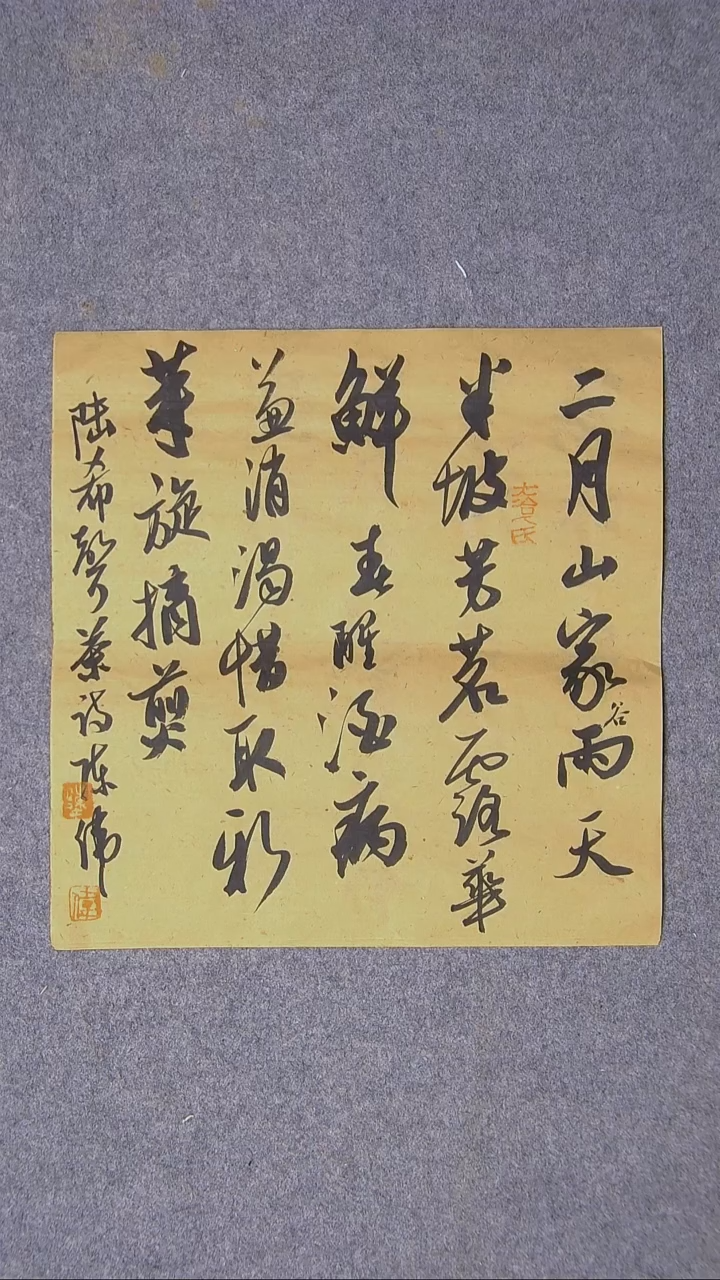 二月山家谷雨天
半坡芳茗露華
鮮春醒酒病
兼消渴惜取新
芽旋摘煎
陸希聲茶詩陳偉
偉